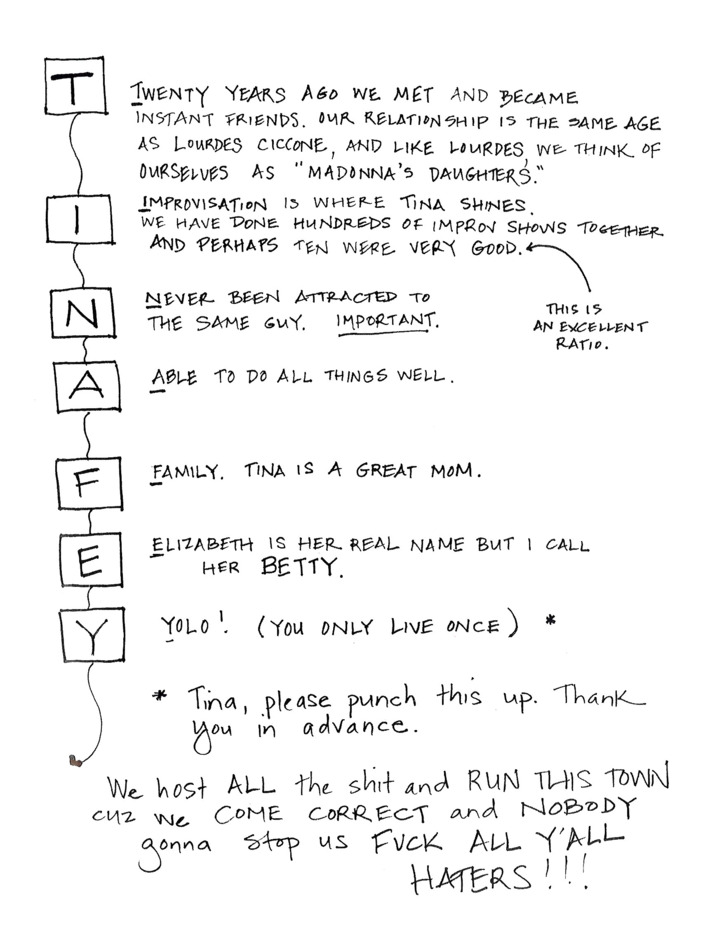 T
TWENTY YEARS AGO WE MET AND BECAME
INSTANT FRIENDS. OUR RELATIONSHIP IS THE SAME AGE
AS LOURDES CICCONE, AND LIKE LOURDES, WE THINK OF
OURSELVES AS "MADONNA'S DAUGHTERS."
I
IMPROVISATION IS WHERE TINA SHINES.
WE HAVE DONE HUNDREDS OF IMPROV SHOWS TOGETHER
AND PERHAPS TEN WERE VERY GOOD.
THIS IS
AN EXCELLENT
RATIO.
N
NEVER BEEN ATTRACTED TO
THE SAME GUY. IMPORTANT.
A
ABLE TO DO ALL THINGS WELL.
F
FAMILY. TINA IS A GREAT MOM.
E
ELIZABETH IS HER REAL NAME BUT I CALL
HER BETTY.
Y
YOLO! (YOU ONLY LIVE ONCE) *
* Tina, please punch this up. Thank
you in advance.
We host ALL the shit and RUN THIS TOWN
cuz we COME CORRECT and NOBODY
gonna stop us FUCK ALL Y'ALL
HATERS!!!